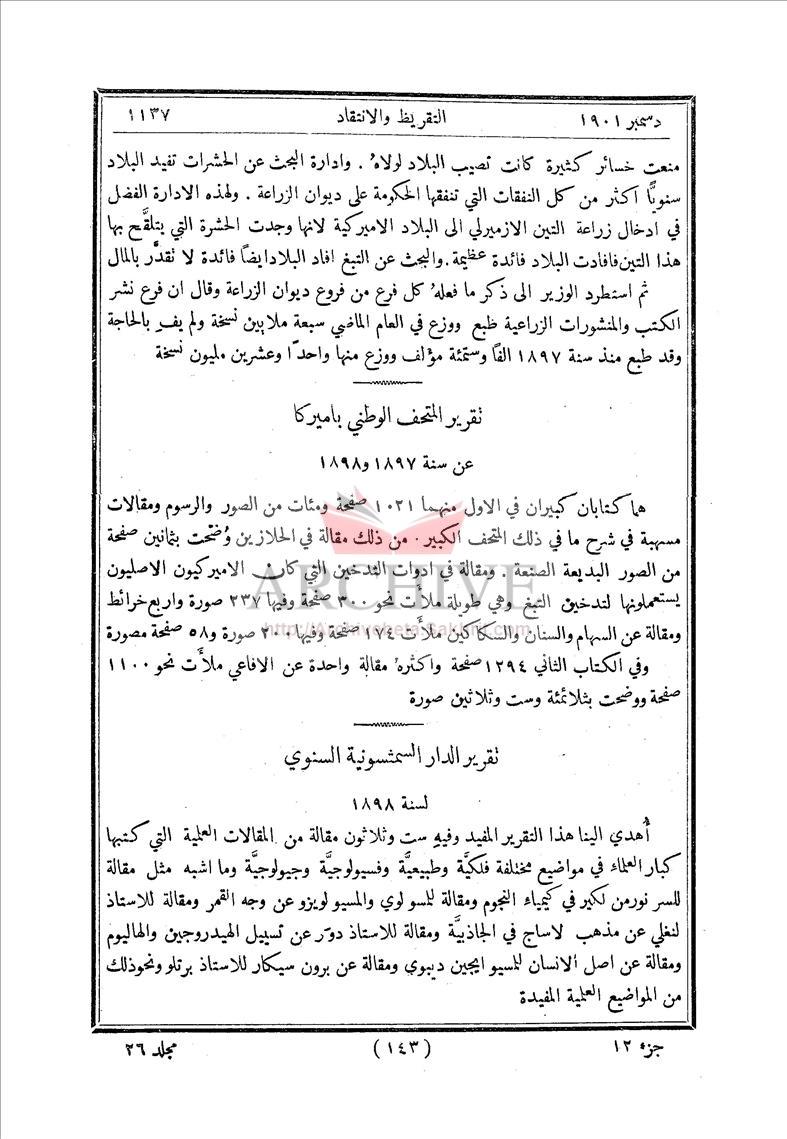 دسمبر ١٩٠١ التقريظ والانتقاد ١١٣٧
منعت خسائر كثيرة كانت تصيب البلاد لولاهُ . وادارة البحث عن الحشرات تفيد البلاد
سنويًّا اكثر من كل النفقات التي تنفقها الحكومة على ديوان الزراعة . ولهذه الادارة الفضل
في ادخال زراعة التين الازميرلي الى البلاد الاميركية لانها وجدت الحشرة التي يتلقَّح بها
هذا التين فافادت البلاد فائدة عظيمة . والبحث عن التبغ افاد البلاد ايضًا فائدة لا تقدَّر بالمال
ثم استطرد الوزير الى ذكر ما فعلهُ كل فرع من فروع ديوان الزراعة وقال ان فرع نشر
الكتب والمنشورات الزراعية طبع ووزع في العام الماضي سبعة ملايين نسخة ولم يفِ بالحاجة
وقد طبع منذ سنة ١٨٩٧ الفًا وستمئة مؤلف ووزع منها واحدًا وعشرين مليون نسخة
تقرير المتحف الوطني باميركا
عن سنة ١٨٩٧ و١٨٩٨
هما كتابان كبيران في الاول منهما ١٠٢١ صفحة ومئات من الصور والرسوم ومقالات
مسهبة في شرح ما في ذلك المتحف الكبير . من ذلك مقالة في الحلازين وُضحت بثمانين صفحة
من الصور البديعة الصنعة . ومقالة في ادوات التدخين التي كان الاميركيون الاصليون
يستعملونها لتدخين التبغ وهي طويلة ملأَت نحو ٣٠٠ صفحة وفيها ٢٣٧ صورة واربع خرائط
ومقالة عن السهام والسنان والسكاكين ملأَت ١٧٤ صفحة وفيها ٢٠٠ صورة و٥٨ صفحة مصورة
وفي الكتاب الثاني ١٢٩٤ صفحة واكثرهُ مقالة واحدة عن الافاعي ملأَت نحو ١١٠٠
صفحة ووضحت بثلاثمئة وست وثلاثين صورة
تقرير الدار السمثسونية السنوي
لسنة ١٨٩٨
أُهدي الينا هذا التقرير المفيد وفيهِ ست وثلاثون مقالة من المقالات العلمية التي كتبها
كبار العلماء في مواضيع مختلفة فلكيَّة وطبيعيَّة وفسيولوجيَّة وجيولوجيَّة وما اشبه مثل مقالة
للسر نورمن لكير في كيمياء النجوم ومقالة للمسو لوي والمسيو لويزو عن وجه القمر ومقالة للاستاذ
لنغلي عن مذهب لاساج في الجاذبيَّة ومقالة للاستاذ دوَر عن تسييل الهيدروجين والهاليوم
ومقالة عن اصل الانسان لمسيو ايجين ديبوي ومقالة عن برون سيكار للاستاذ برتلو ونحو ذلك
من المواضيع العلمية المفيدة
جزء ١٢ (١٤٣) مجلد ٢٦
ARCHIVE
http://Archivebeta.Sakhrit.com